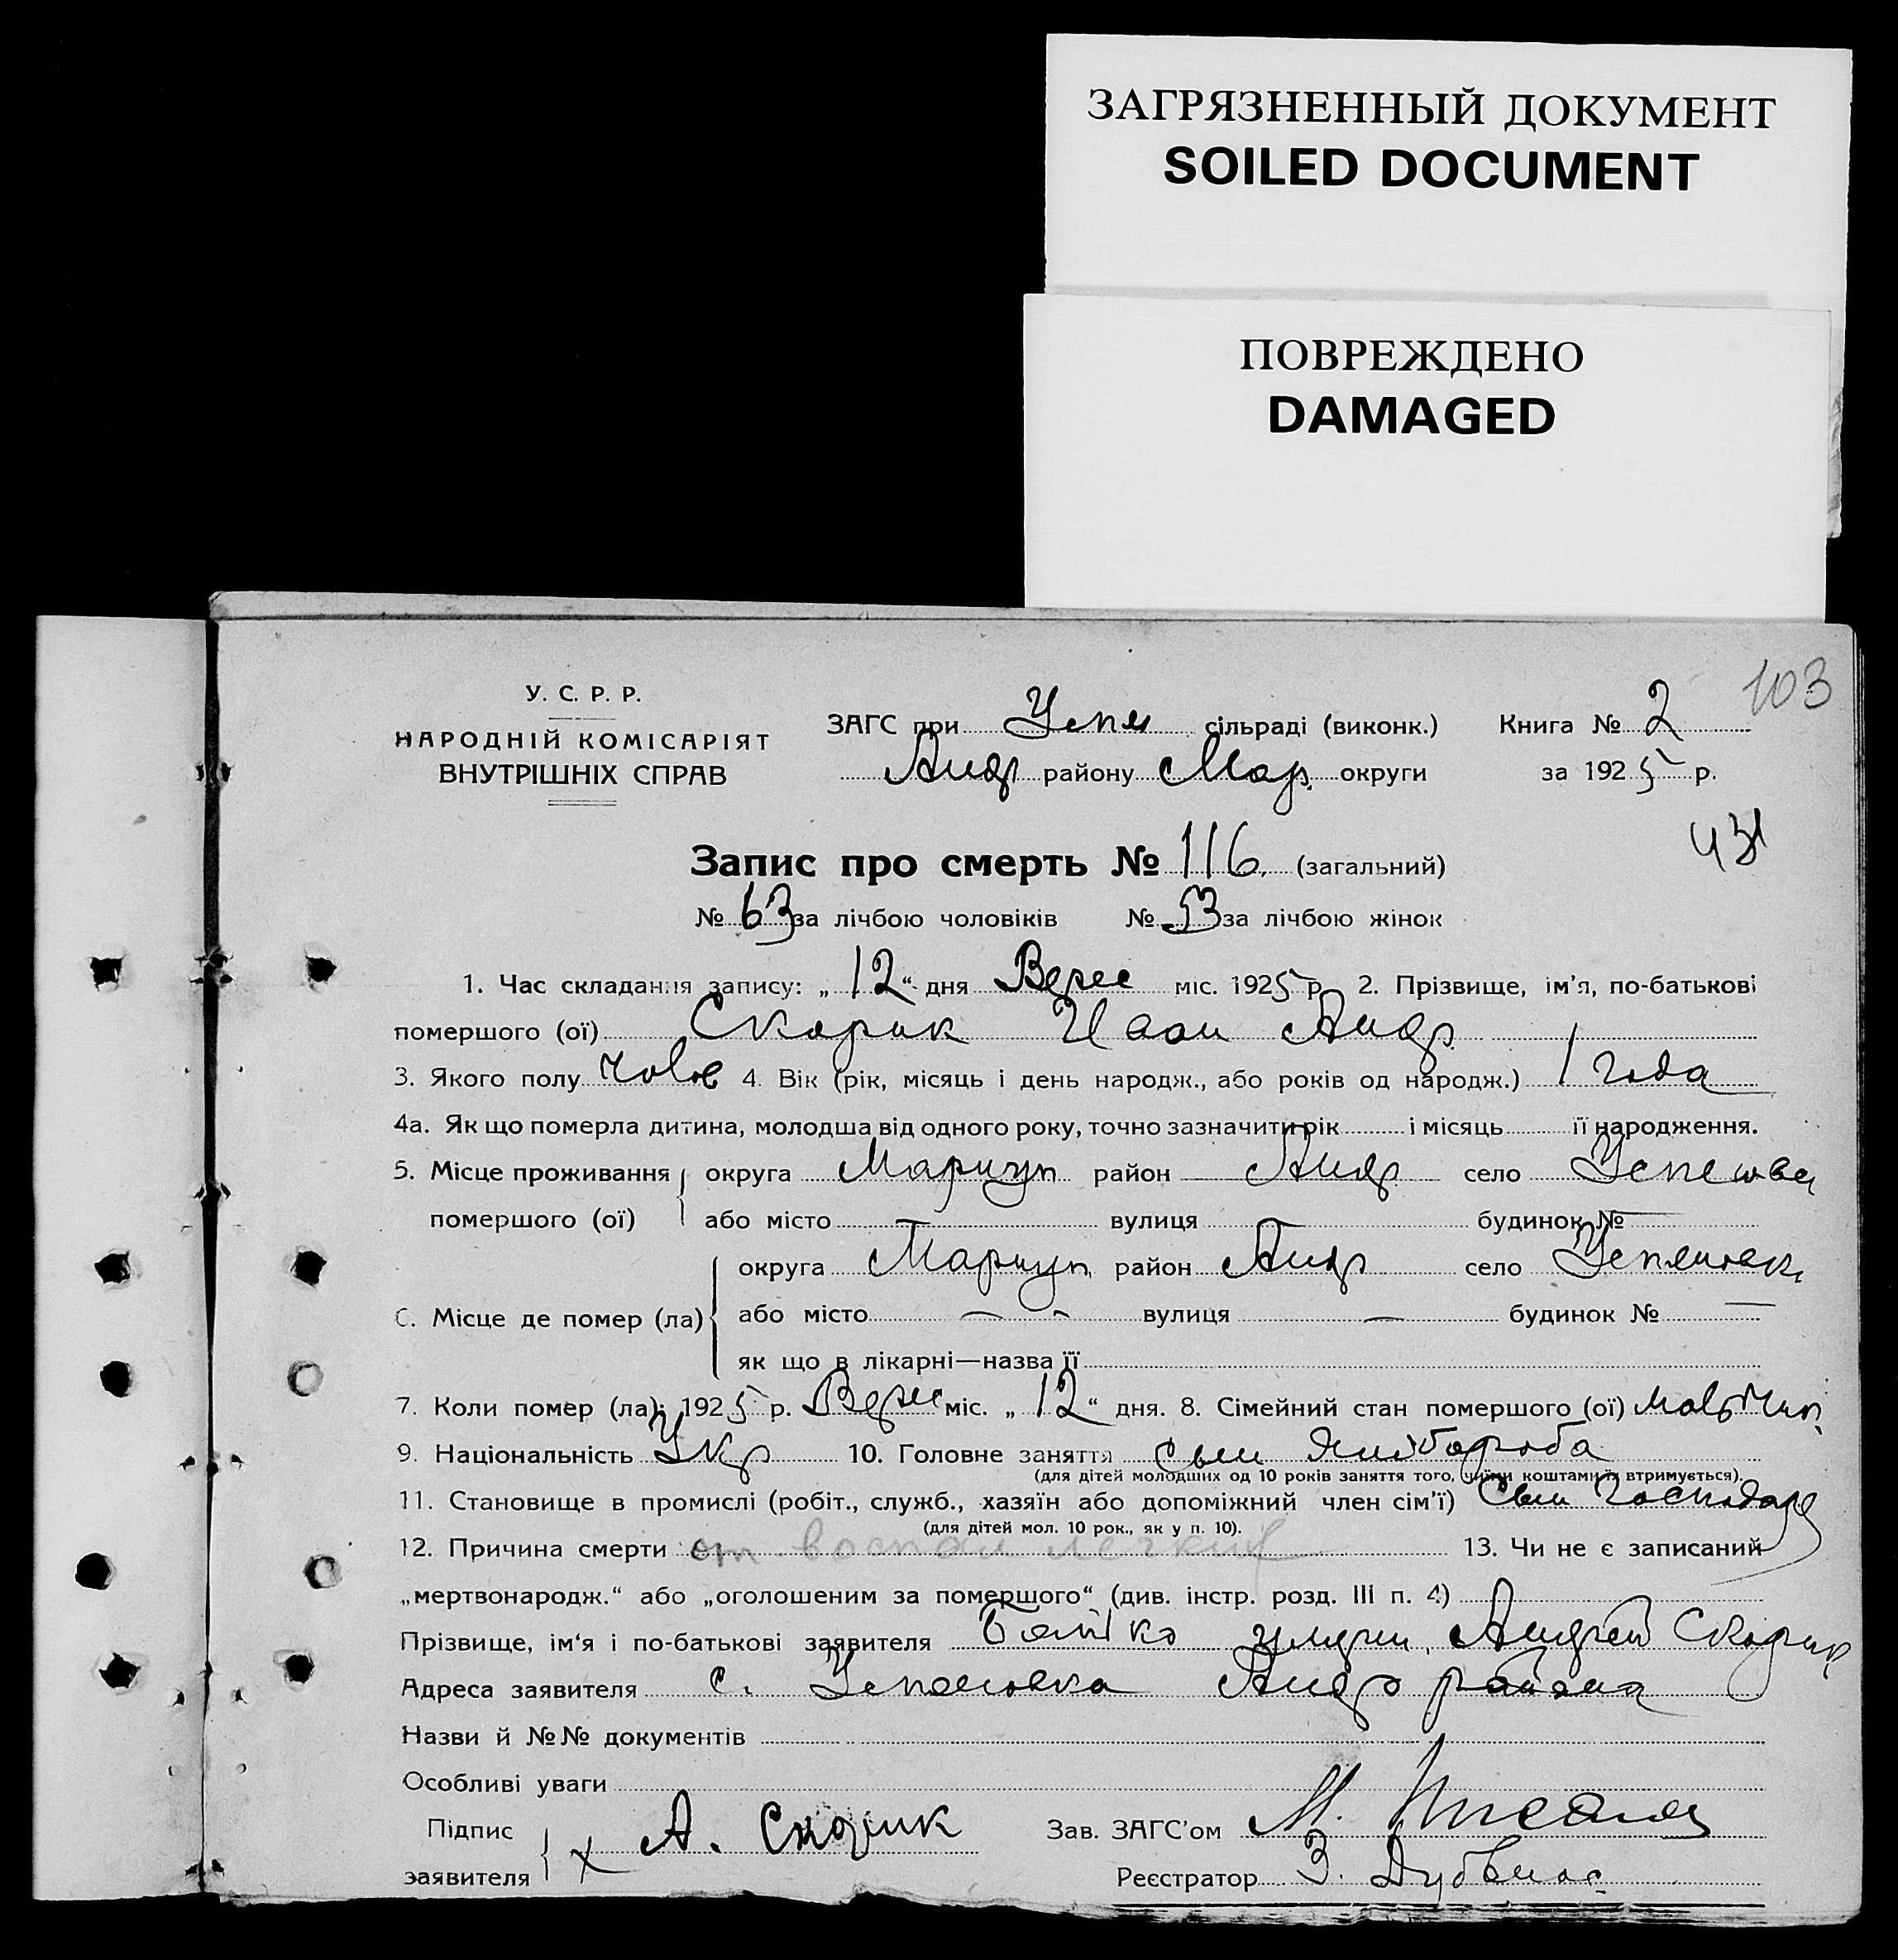 ЗАГРЯЗНЕННЫЙ ДОКУМЕНТ
SOILED DOCUMENT
ПОВРЕЖДЕНО
DAMAGED
103
У. С. Р. Р.
НАРОДНІЙ КОМІСАРІЯТ
ВНУТРІШНІХ СПРАВ
ЗАГС при Успн сільраді (виконк.) Книга № 2
Андр району Мар. округи за 1925 р.
431
Запис про смерть № 116. (загальний)
№ 63 за лічбою чоловіків № 53 за лічбою жінок
1. Час складання запису: „12“ дня Верес міс. 1925 р. 2. Прізвище, ім'я, по-батькові
помершого (ої) Скорик Иван Андр.
3. Якого полу Чолов 4. Вік (рік, місяць і день народж., або років од народж.) 1 года
4а. Як що померла дитина, молодша від одного року, точно зазначити рік і місяць її народження.
5. Місце проживання округа Мариуп район Андр село
помершого (ої) або місто вулиця будинок №
6. Місце де помер (ла) округа Мариуп. район Андр село
або місто — вулиця — будинок № —
як що в лікарні—назва її
7. Коли помер (ла): 1925 р. Верес міс. „12“ дня. 8. Сімейний стан помершого (ої)
9. Національність Укр 10. Головне заняття Сын Хлибороба
(для дітей молодших од 10 років заняття того, чиїми коштами їх втримується).
11. Становище в промислі (робіт., служб., хазяїн або допоміжний член сім'ї) Сын Господаря
(для дітей мол. 10 рок., як у п. 10).
12. Причина смерти от воспал легких 13. Чи не є записаний
„мертвонародж.“ або „оголошеним за помершого“ (див. інстр. розд. III п. 4)
Прізвище, ім'я і по-батькові заявителя Батько Андрей Скорик
Адреса заявителя с. Успеновка Андр района
Назви й №№ документів
Особливі уваги
Підпис заявителя х А. Скорик Зав. ЗАГС'ом М.
Реєстратор З.